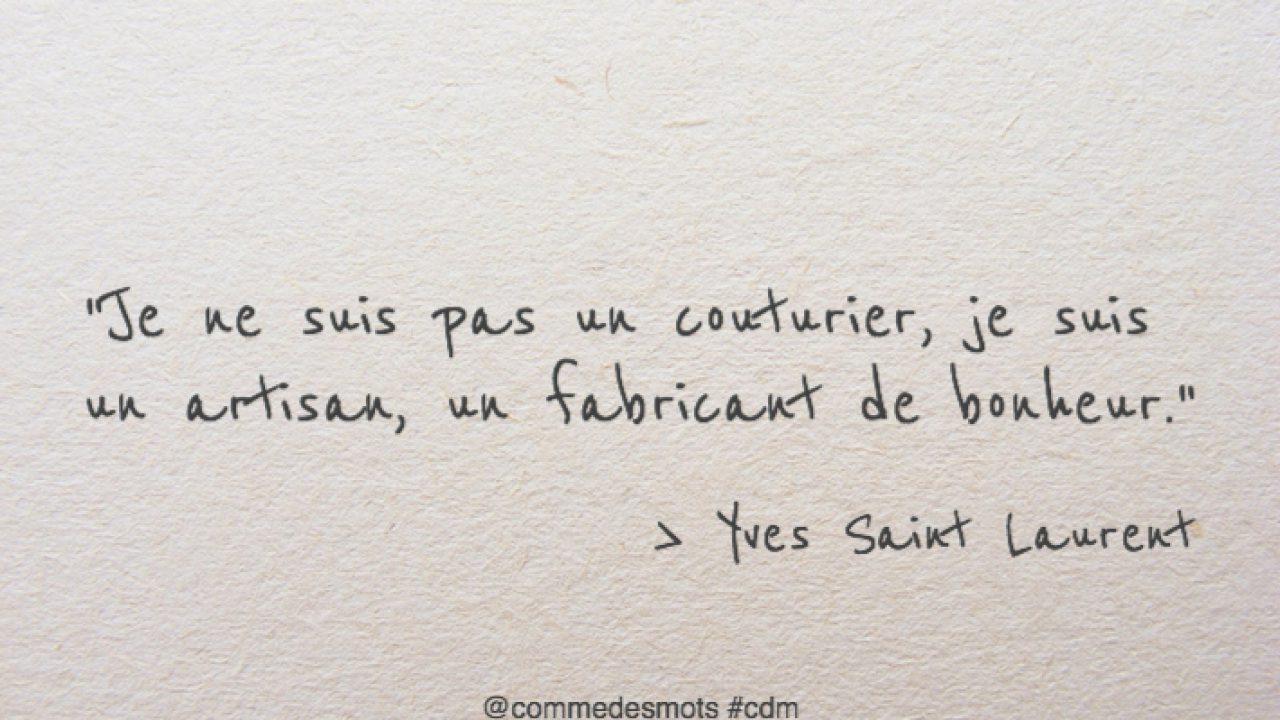 "Je ne suis pas un couturier, je suis
un artisan, un fabricant de bonheur."
> Yves Saint Laurent
@commedesmots #cdm